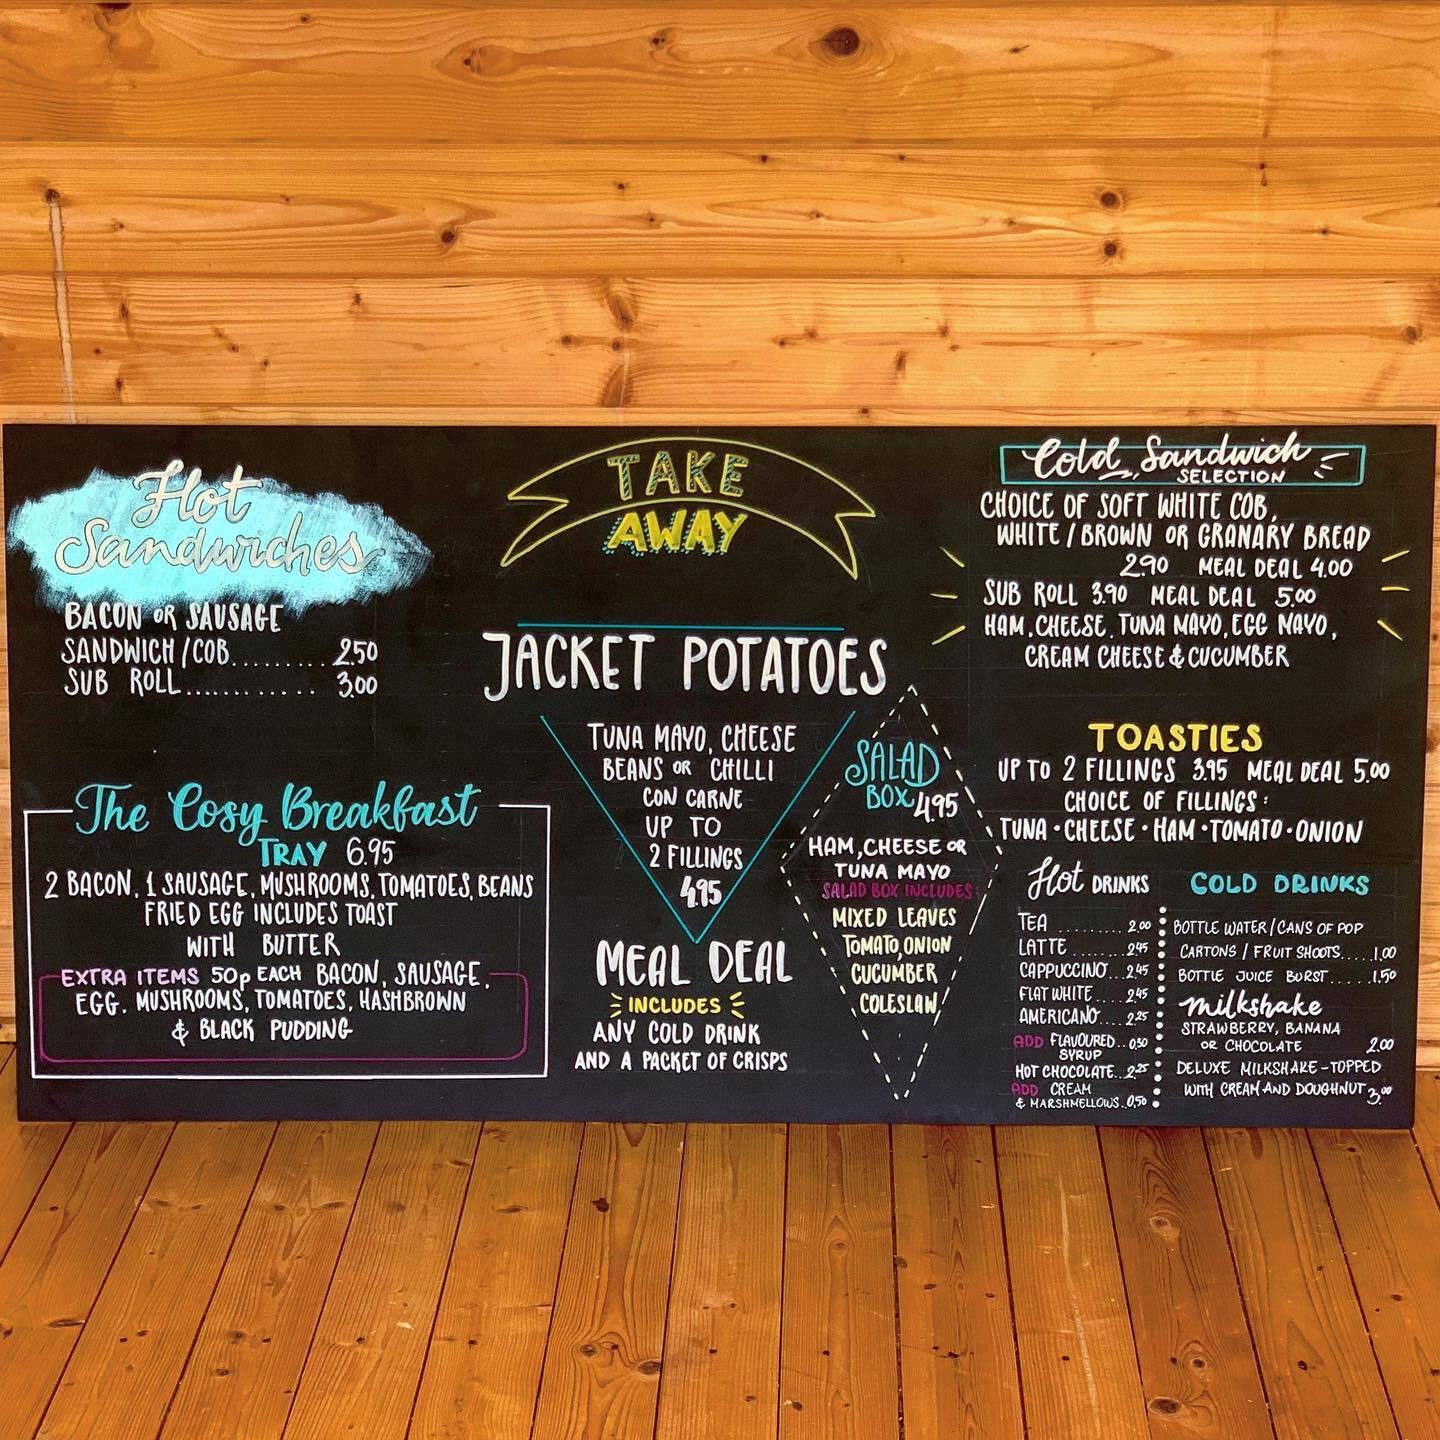 Hot
Sandwiches
BACON OR SAUSAGE
SANDWICH / COB......... 2.50
SUB ROLL............ 3.00
The Cosy Breakfast
TRAY 6.95
2 BACON, 1 SAUSAGE, MUSHROOMS, TOMATOES, BEANS
FRIED EGG INCLUDES TOAST
WITH BUTTER
EXTRA ITEMS 50p EACH BACON, SAUSAGE,
EGG. MUSHROOMS, TOMATOES, HASHBROWN
& BLACK PUDDING
TAKE
AWAY
JACKET POTATOES
TUNA MAYO, CHEESE
BEANS OR CHILLI
CON CARNE
UP TO
2 FILLINGS
4.95
MEAL DEAL
INCLUDES
ANY COLD DRINK
AND A PACKET OF CRISPS
SALAD
BOX 4.95
HAM, CHEESE OR
TUNA MAYO
SALAD BOX INCLUDES:
MIXED LEAVES
TOMATO, ONION
CUCUMBER
COLESLAW
Cold Sandwich
SELECTION
CHOICE OF SOFT WHITE COB,
WHITE / BROWN OR GRANARY BREAD
2.90 MEAL DEAL 4.00
SUB ROLL 3.90 MEAL DEAL 5.00
HAM, CHEESE, TUNA MAYO, EGG MAYO,
CREAM CHEESE & CUCUMBER
TOASTIES
UP TO 2 FILLINGS 3.95 MEAL DEAL 5.00
CHOICE OF FILLINGS:
TUNA • CHEESE • HAM • TOMATO • ONION
Hot DRINKS
TEA ......... 2.00
LATTE ...... 2.45
CAPPUCCINO... 2.45
FLAT WHITE .... 2.45
AMERICANO.... 2.25
ADD FLAVOURED.. 0.50
SYRUP
HOT CHOCOLATE.. 2.25
ADD CREAM
& MARSHMELLOWS.. 0.50
COLD DRINKS
BOTTLE WATER / CANS OF POP
CARTONS / FRUIT SHOOTS..... 1.00
BOTTLE JUICE BURST...... 1.50
milkshake
STRAWBERRY, BANANA
OR CHOCOLATE 2.00
DELUXE MILKSHAKE - TOPPED
WITH CREAM AND DOUGHNUT 3.00